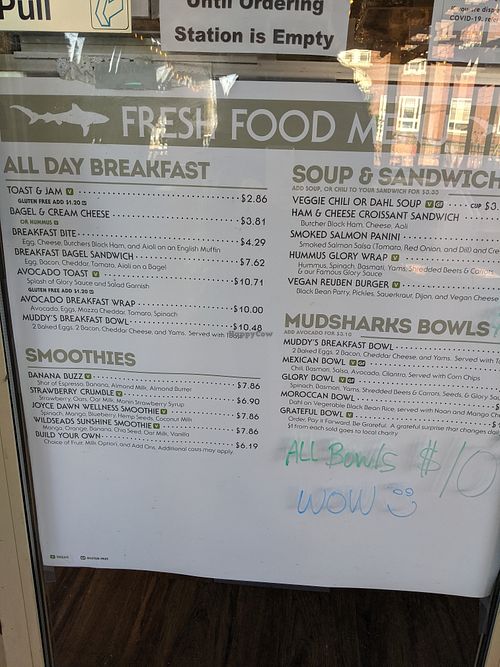 Pull
Until Ordering
Station is Empty
COVID-19
FRESH FOOD
ALL DAY BREAKFAST
TOAST & JAM V $2.86
GLUTEN FREE ADD $1.20
BAGEL & CREAM CHEESE $3.81
OR HUMMUS V
BREAKFAST BITE $4.29
Egg, Cheese, Butchers Black Ham, and Aioli on an English Muffin
BREAKFAST BAGEL SANDWICH $7.62
Egg, Bacon, Cheddar, Tomato, Aioli on a Bagel
AVOCADO TOAST V $10.71
Splash of Glory Sauce and Salad Garnish
GLUTEN FREE ADD $1.20
AVOCADO BREAKFAST WRAP $10.00
Avocado, Eggs, Mozza Cheddar, Tomato, Spinach
MUDDY'S BREAKFAST BOWL $10.48
2 Baked Eggs, 2 Bacon, Cheddar Cheese, and Yams. Served with
SMOOTHIES
BANANA BUZZ V $7.86
Shot of Espresso, Banana, Almond Milk, Almond Butter
STRAWBERRY CRUMBLE V $6.90
Strawberry, Oats, Oat Milk, Monin Strawberry Syrup
JOYCE DAWN WELLNESS SMOOTHIE V $7.86
Spinach, Mango, Blueberry, Hemp Seeds, Coconut Milk
WILDSEADS SUNSHINE SMOOTHIE V $7.86
Mango, Orange, Banana, Chia Seed, Oat Milk, Vanilla
BUILD YOUR OWN $6.19
Choice of Fruit, Milk Option, and Add Ons. Additional costs may apply.
SOUP & SANDWICH
ADD SOUP, OR CHILI TO YOUR SANDWICH FOR
VEGGIE CHILI OR DAHL SOUP V GF CUP $3.
HAM & CHEESE CROISSANT SANDWICH
Butcher Black Ham, Cheese, Aoli
SMOKED SALMON PANINI
Smoked Salmon Salsa (Tomato, Red Onion, and Dill) and Cre
HUMMUS GLORY WRAP V
Hummus, Spinach, Basmati, Yams, Shredded Beets & Carrots
& our Famous Glory Sauce
VEGAN REUBEN BURGER V
Black Bean Parry, Pickles, Sauerkraut, Dijon, and Vegan Cheese
MUDSHARKS BOWLS
ADD AVOCADO FOR $3.10
MUDDY'S BREAKFAST BOWL
2 Baked Eggs, 2 Bacon, Cheddar Cheese, and Yams. Served with
MEXICAN BOWL V GF
Chili, Basmati, Salsa, Avocado, Cilantro, Served with Corn Chips
GLORY BOWL V GF
Spinach, Dahl, Basmati, Yams, Shredded Beets & Carrots, Seeds, & Glory Sa
MOROCCAN BOWL
Dahl on Vegetable Black Bean Rice, served with Naan and Mango Ch
GRATEFUL BOWL V
Order, Pay it Forward, Be Grateful. A grateful surprise that changes dai
$1 from each sold goes to local charity
ALL BOWLS $10
WOW
V VEGAN GF GLUTEN FREE
HappyCow